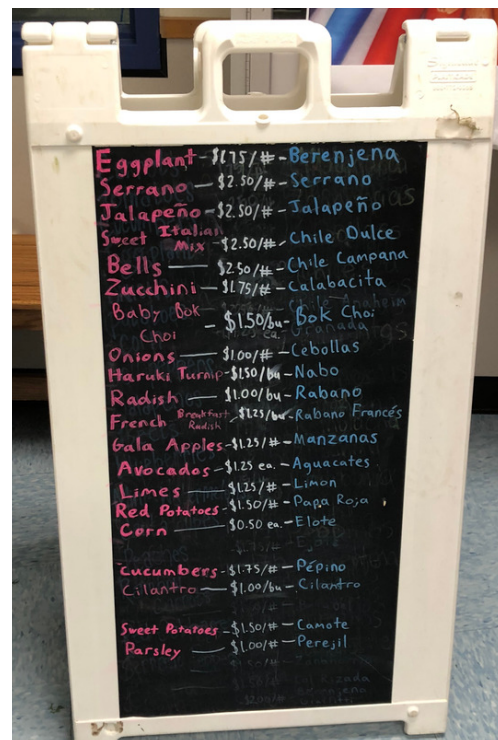 Eggplant - $1.75/# - Berenjena
Serrano — $2.50/# - Serrano
Jalapeño - $2.50/# - Jalapeño
Sweet Italian Mix - $2.50/# - Chile Dulce
Bells — $2.50/# - Chile Campana
Zucchini - $1.75/# - Calabacita
Baby Bok
Choi - $1.50/bu - Bok Choi
Onions — $1.00/# - Cebollas
Haruki Turnip - $1.50/bu - Nabo
Radish — $1.00/bu - Rabano
French Breakfast Radish - $1.25/bu - Rabano Francés
Gala Apples - $1.25/# - Manzanas
Avocados - $1.25 ea. - Aguacates
Limes — $1.25/# - Limon
Red Potatoes - $1.50/# - Papa Roja
Corn — $0.50 ea. - Elote
Cucumbers - $1.75/# - Pépino
Cilantro — $1.00/bu - Cilantro
Sweet Potatoes - $1.50/# - Camote
Parsley — $1.00/# - Perejil